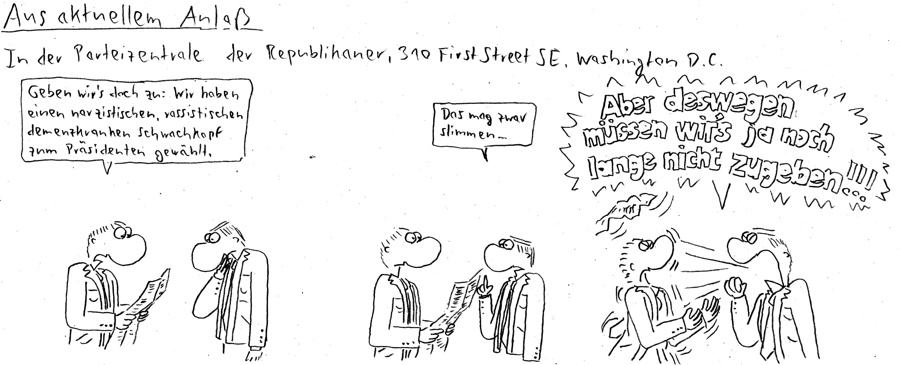 Aus aktuellem Anlaß
In der Parteizentrale der Republikaner, 310 First Street SE, Washington D.C.
Geben wir's doch zu: Wir haben
einen narzistischen, rassistischen
demenzkranken Schwachkopf
zum Präsidenten gewählt.
Das mag zwar
stimmen...
Aber deswegen
müssen wir's ja noch
lange nicht zugeben...!!!